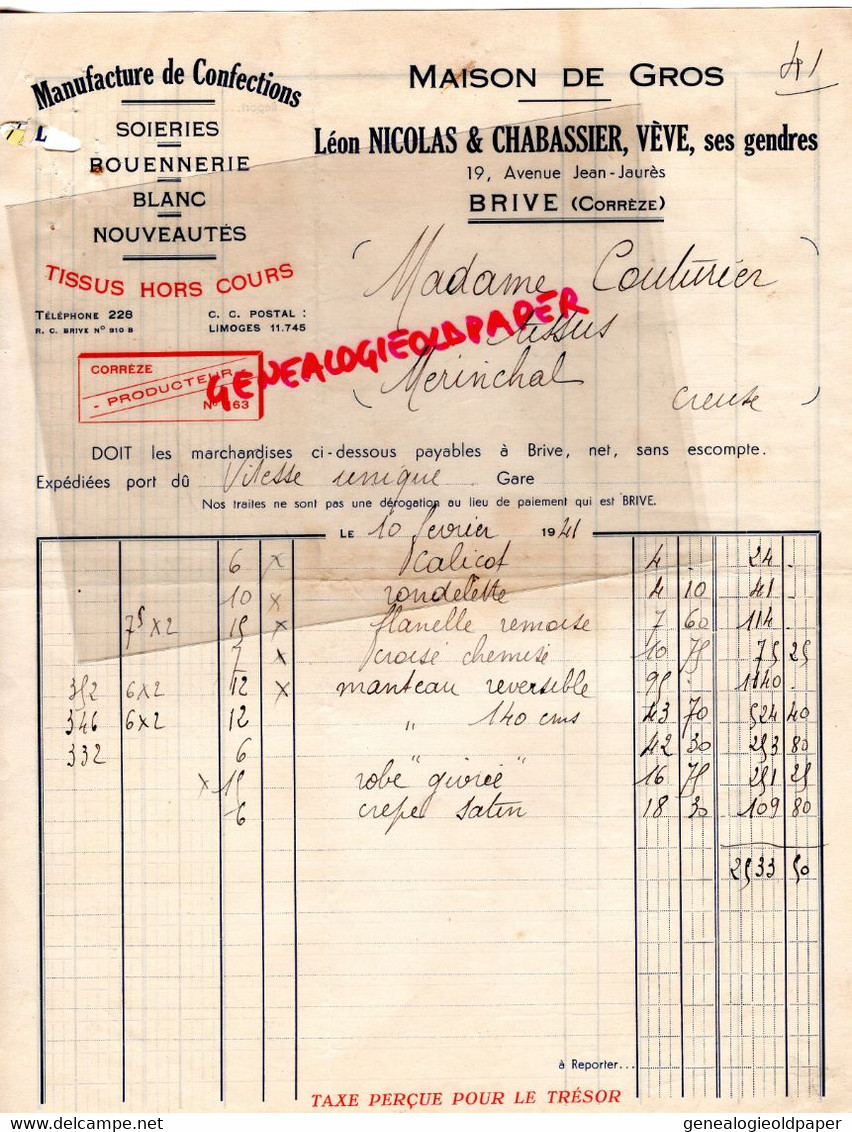 41
Manufacture de Confections
SOIERIES
BOUENNERIE
BLANC
NOUVEAUTÉS
TISSUS HORS COURS
TÉLÉPHONE 228
R. C. BRIVE Nº 910 B
C. C. POSTAL :
LIMOGES 11.745
CORRÈZE
- PRODUCTEUR -
Nº 163
MAISON DE GROS
Léon NICOLAS & CHABASSIER, VÈVE, ses gendres
19, Avenue Jean-Jaurès
BRIVE (CORRÈZE)
Madame Couturier
tissus
Mérinchal
Creuse
GENEALOGIEOLDPAPER
DOIT les marchandises ci-dessous payables à Brive, net, sans escompte.
Expédiées port dû Vitesse unique Gare
Nos traites ne sont pas une dérogation au lieu de paiement qui est BRIVE.
LE 10 fevrier 1941
6 x calicot 4 . 24 .
10 x rondelette 4 10 41 .
75 x 2 15 x flanelle remoise 7 60 114 .
7 x croisé chemise 10 75 75 25
352 6x2 12 x manteau reversible 95 . 1140 .
346 6x2 12 " 140 cms 43 70 524 40
332 6 " 42 30 253 80
x 15 robe "givrée" 16 75 251 25
6 crepe satin 18 30 109 80
2533 50
à Reporter...
TAXE PERÇUE POUR LE TRÉSOR
genealogieoldpaper